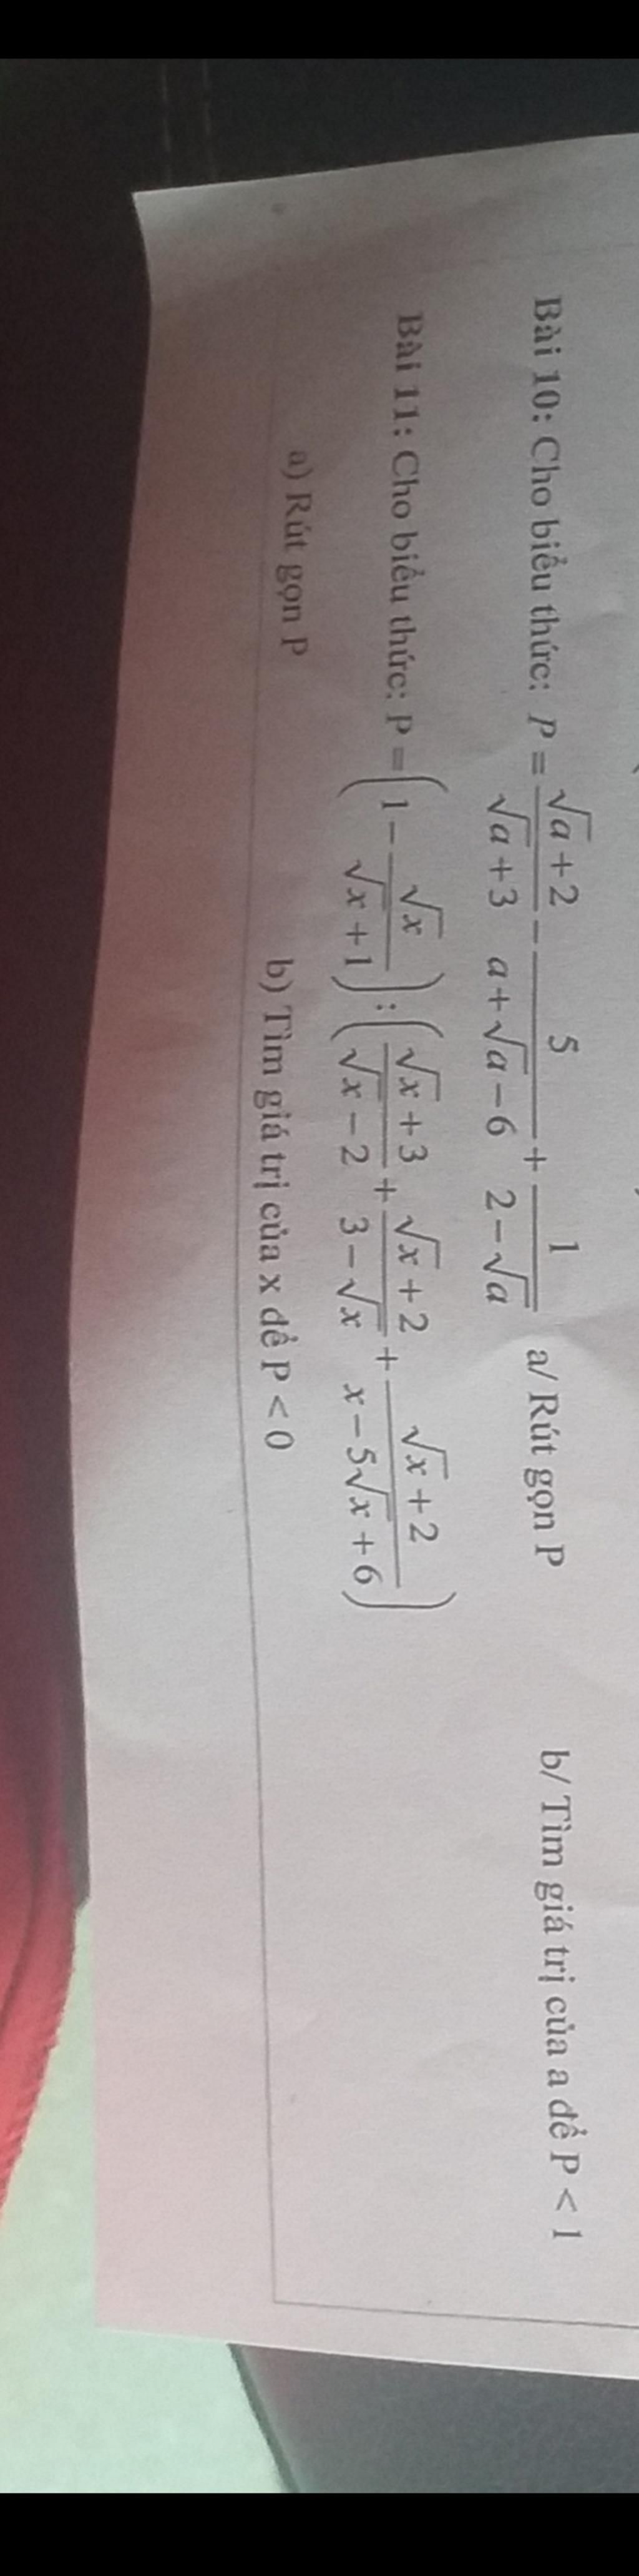 Bài 10: Cho biểu thức: P = \frac{\sqrt{a}+2}{\sqrt{a}+3} - \frac{5}{a+\sqrt{a}-6} + \frac{1}{2-\sqrt{a}} a/ Rút gọn P b/ Tìm giá trị của a để P < 1
Bài 11: Cho biểu thức: P = \left(1 - \frac{\sqrt{x}}{\sqrt{x}+1}\right) : \left(\frac{\sqrt{x}+3}{\sqrt{x}-2} + \frac{\sqrt{x}+2}{3-\sqrt{x}} + \frac{\sqrt{x}+2}{x-5\sqrt{x}+6}\right)
a) Rút gọn P b) Tìm giá trị của x để P < 0